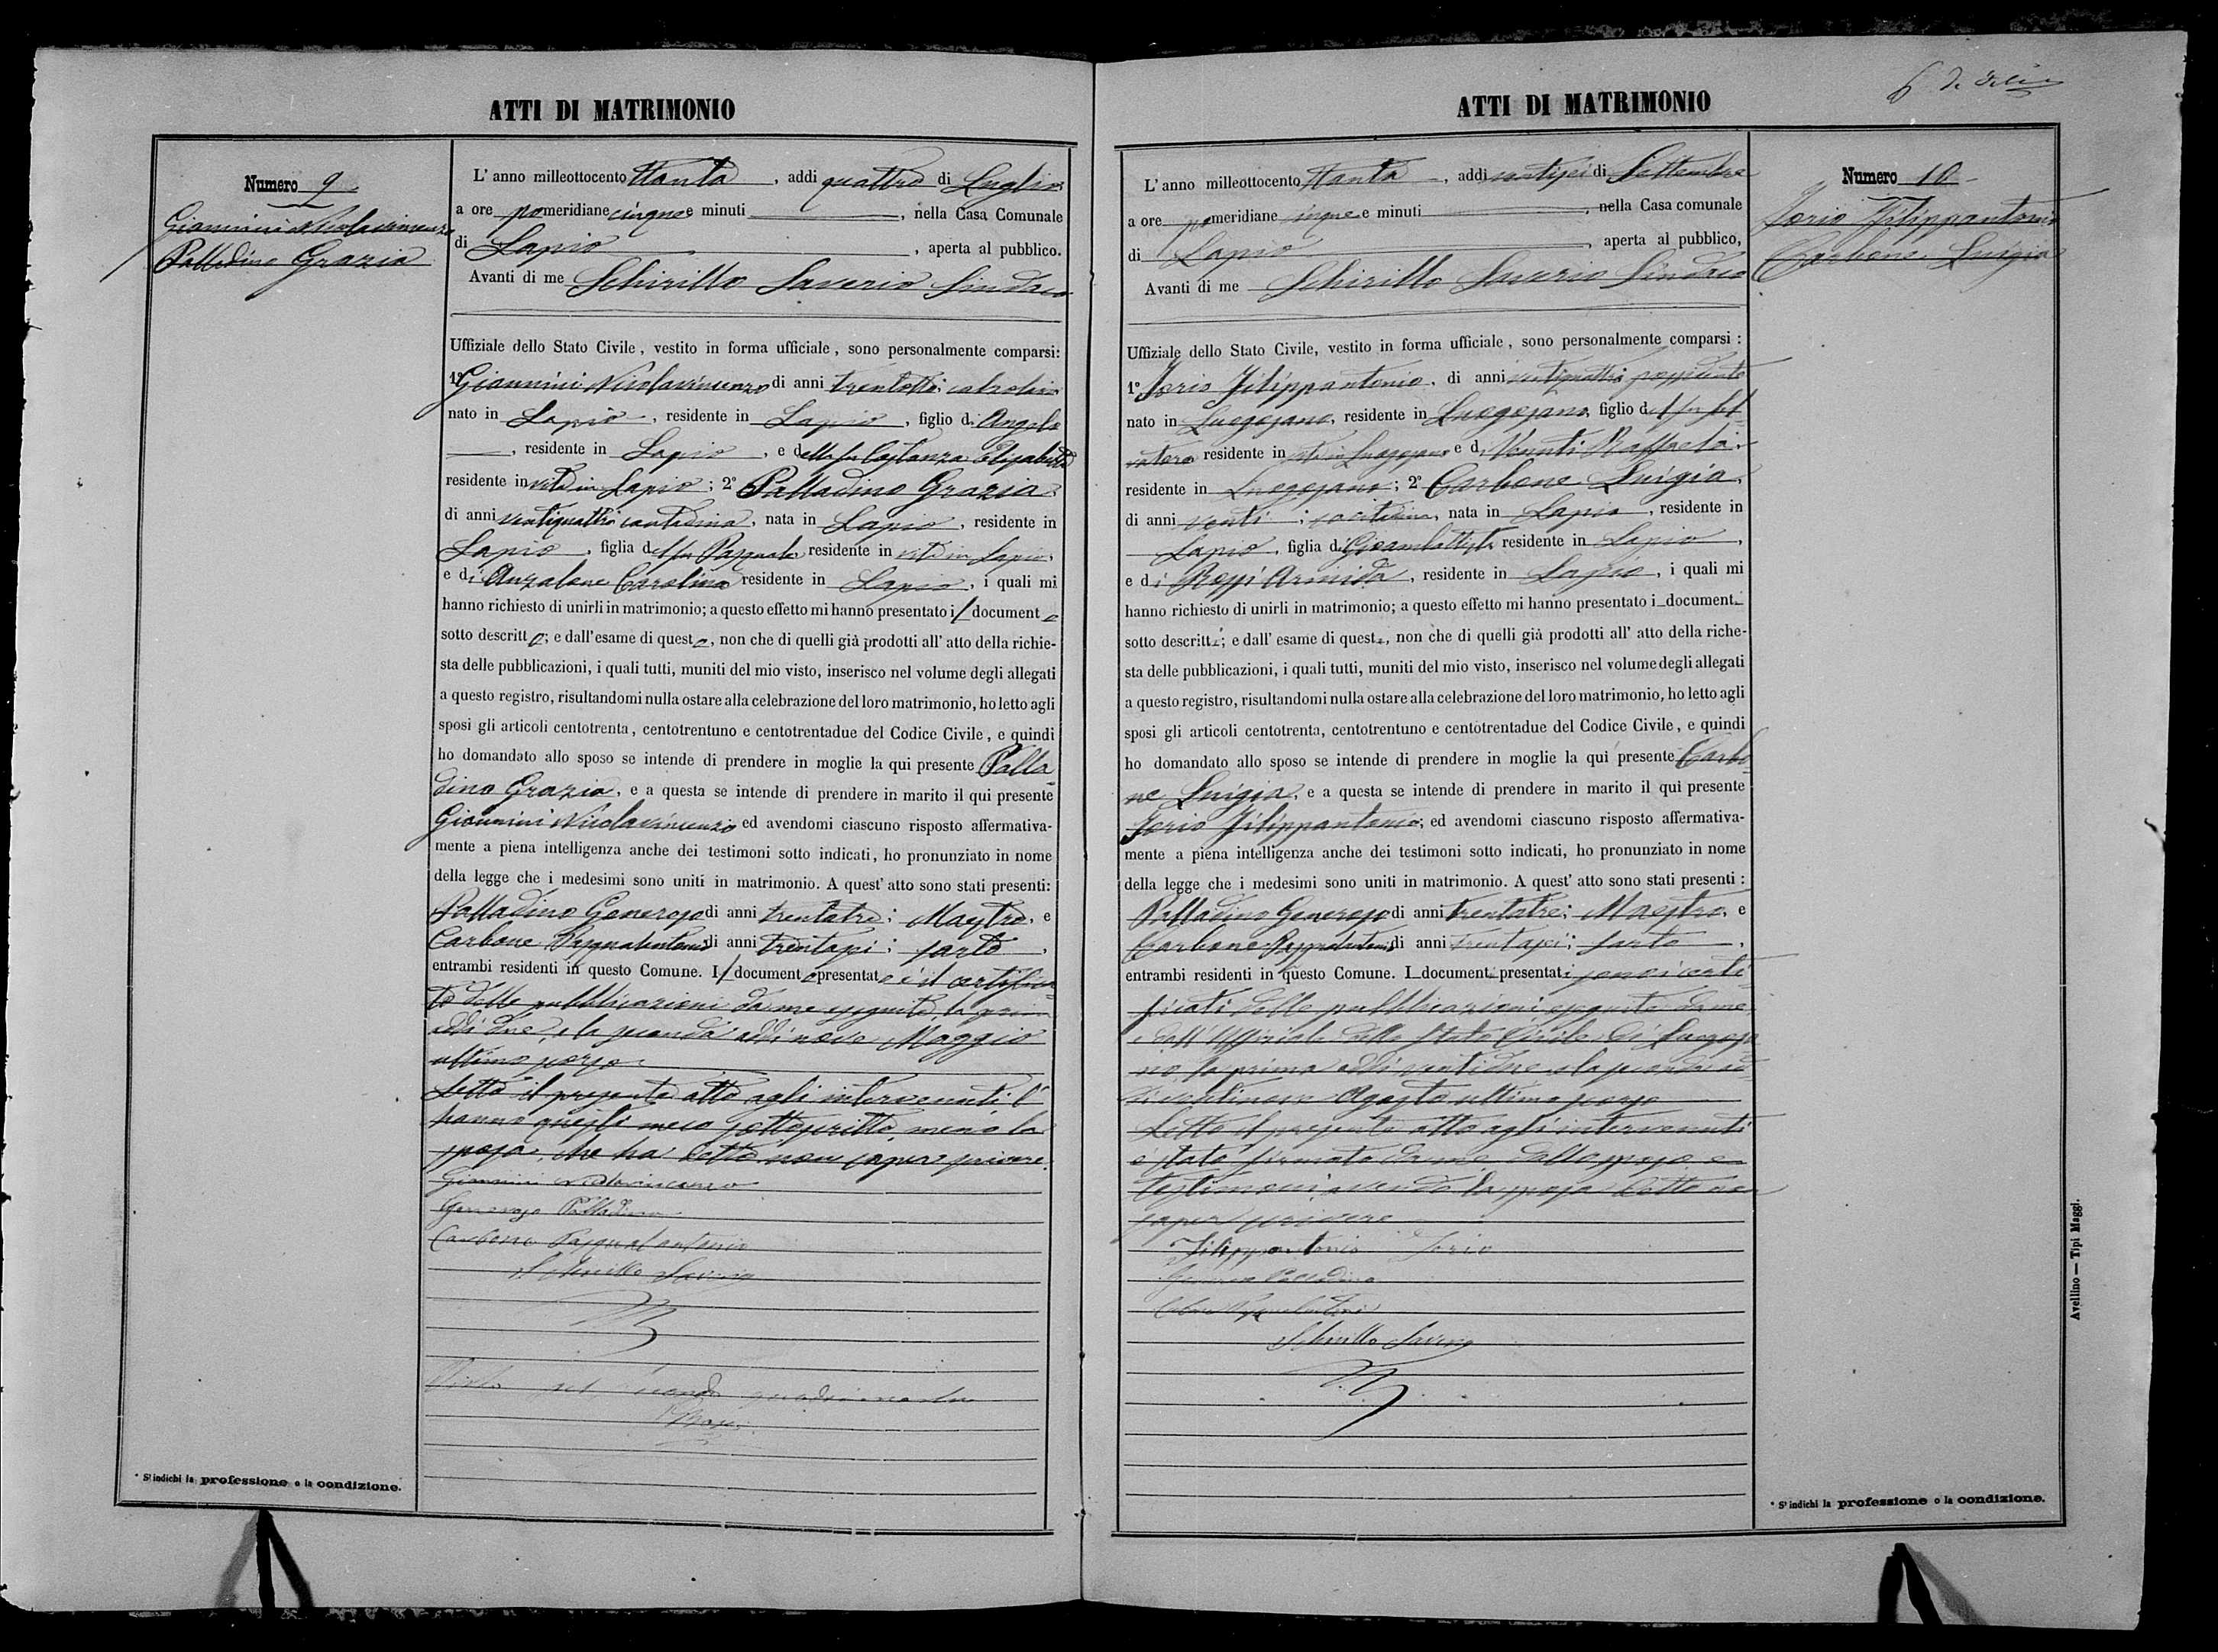 ATTI DI MATRIMONIO
Numero 9
Giannini Nicolavincenzo
Palladino Grazia
L'anno milleottocento ttanta, addi quattro di Luglio
a ore pomeridiane cinque e minuti, nella Casa Comunale
di Lapio, aperta al pubblico.
Avanti di me Schirillo Saverio Sindaco
Uffiziale dello Stato Civile, vestito in forma ufficiale, sono personalmente comparsi:
1º Giannini Nicolavincenzo di anni trentotto; calzolaio
nato in Lapio, residente in Lapio, figlio di Angelo
, residente in Lapio, e della fu Costanza Elisabetta
residente in vita in Lapio; 2º Palladino Grazia
di anni ventiquattro contadina, nata in Lapio, residente in
Lapio, figlia del fu Pasquale residente in vita in Lapio,
e di Anzalone Carolina residente in Lapio, i quali mi
hanno richiesto di unirli in matrimonio; a questo effetto mi hanno presentato il documento
sotto descritto; e dall'esame di questo, non che di quelli già prodotti all'atto della richie-
sta delle pubblicazioni, i quali tutti, muniti del mio visto, inserisco nel volume degli allegati
a questo registro, risultandomi nulla ostare alla celebrazione del loro matrimonio, ho letto agli
sposi gli articoli centotrenta, centotrentuno e centotrentadue del Codice Civile, e quindi
ho domandato allo sposo se intende di prendere in moglie la qui presente Palla
dino Grazia, e a questa se intende di prendere in marito il qui presente
Giannini Nicolavincenzo ed avendomi ciascuno risposto affermativa-
mente a piena intelligenza anche dei testimoni sotto indicati, ho pronunziato in nome
della legge che i medesimi sono uniti in matrimonio. A quest'atto sono stati presenti:
Palladino Generoso di anni trentatre; Mastro, e
Carbone Pasqualantonio di anni trentasei; sarto,
entrambi residenti in questo Comune. Il documento presentato è il certifica
to delle pubblicazioni da me eseguite, la prima
addi due, e la seconda addi nove Maggio
ultimo scorso
Letto il presente atto agli intervenuti l'
hanno questi meco sottoscritto, meno la
sposa, che ha detto non saper scrivere.
Giannini Nicolavincenzo
Generoso Palladino
Carbone Pasqualantonio
Schirillo Saverio
Visto pel secondo quadrimestre
* S'indichi la professione o la condizione.
ATTI DI MATRIMONIO
Numero 10
Iorio Filippantonio
Carbone Luigia
L'anno milleottocento ttanta, addi ventisei di Settembre
a ore pomeridiane cinque e minuti, nella Casa comunale
di Lapio, aperta al pubblico,
Avanti di me Schirillo Saverio Sindaco
Uffiziale dello Stato Civile, vestito in forma ufficiale, sono personalmente comparsi:
1º Iorio Filippantonio, di anni ventiquattro; possidente
nato in Luogosano, residente in Luogosano, figlio del fu Sal
vatore residente in vita in Luogosano e di Venuti Raffaela,
residente in Luogosano; 2º Carbone Luigia,
di anni venti;, nata in Lapio, residente in
Lapio, figlia di Giovambattista residente in Lapio,
e di Rossi Armida, residente in Lapio, i quali mi
hanno richiesto di unirli in matrimonio; a questo effetto mi hanno presentato i document
sotto descritti; e dall'esame di questi, non che di quelli già prodotti all'atto della riche-
sta delle pubblicazioni, i quali tutti, muniti del mio visto, inserisco nel volume degli allegati
a questo registro, risultandomi nulla ostare alla celebrazione del loro matrimonio, ho letto agli
sposi gli articoli centotrenta, centotrentuno e centotrentadue del Codice Civile, e quindi
ho domandato allo sposo se intende di prendere in moglie la qui presente Carbo
ne Luigia, e a questa se intende di prendere in marito il qui presente
Iorio Filippantonio; ed avendomi ciascuno risposto affermativa-
mente a piena intelligenza anche dei testimoni sotto indicati, ho pronunziato in nome
della legge che i medesimi sono uniti in matrimonio. A quest'atto sono stati presenti:
Palladino Generoso di anni trentatre; Maestro, e
Carbone Pasqualantonio di anni trentasei; sarto,
entrambi residenti in questo Comune. I documenti presentati sono i certi
ficati delle pubblicazioni eseguite da me
e dall'Uffiziale dello Stato Civile di Luogosa
no, la prima addi ventidue e la seconda ad
di ventinove Agosto ultimo scorso
Letto il presente atto agli intervenuti
è stato firmato da me, dallo sposo e
testimoni, avendo la sposa detto non
saper scrivere
Filippantonio Iorio
Generoso Palladino
Carbone Pasqualantonio
Schirillo Saverio
* S'indichi la professione o la condizione.
Avellino — Tipi Maggi.